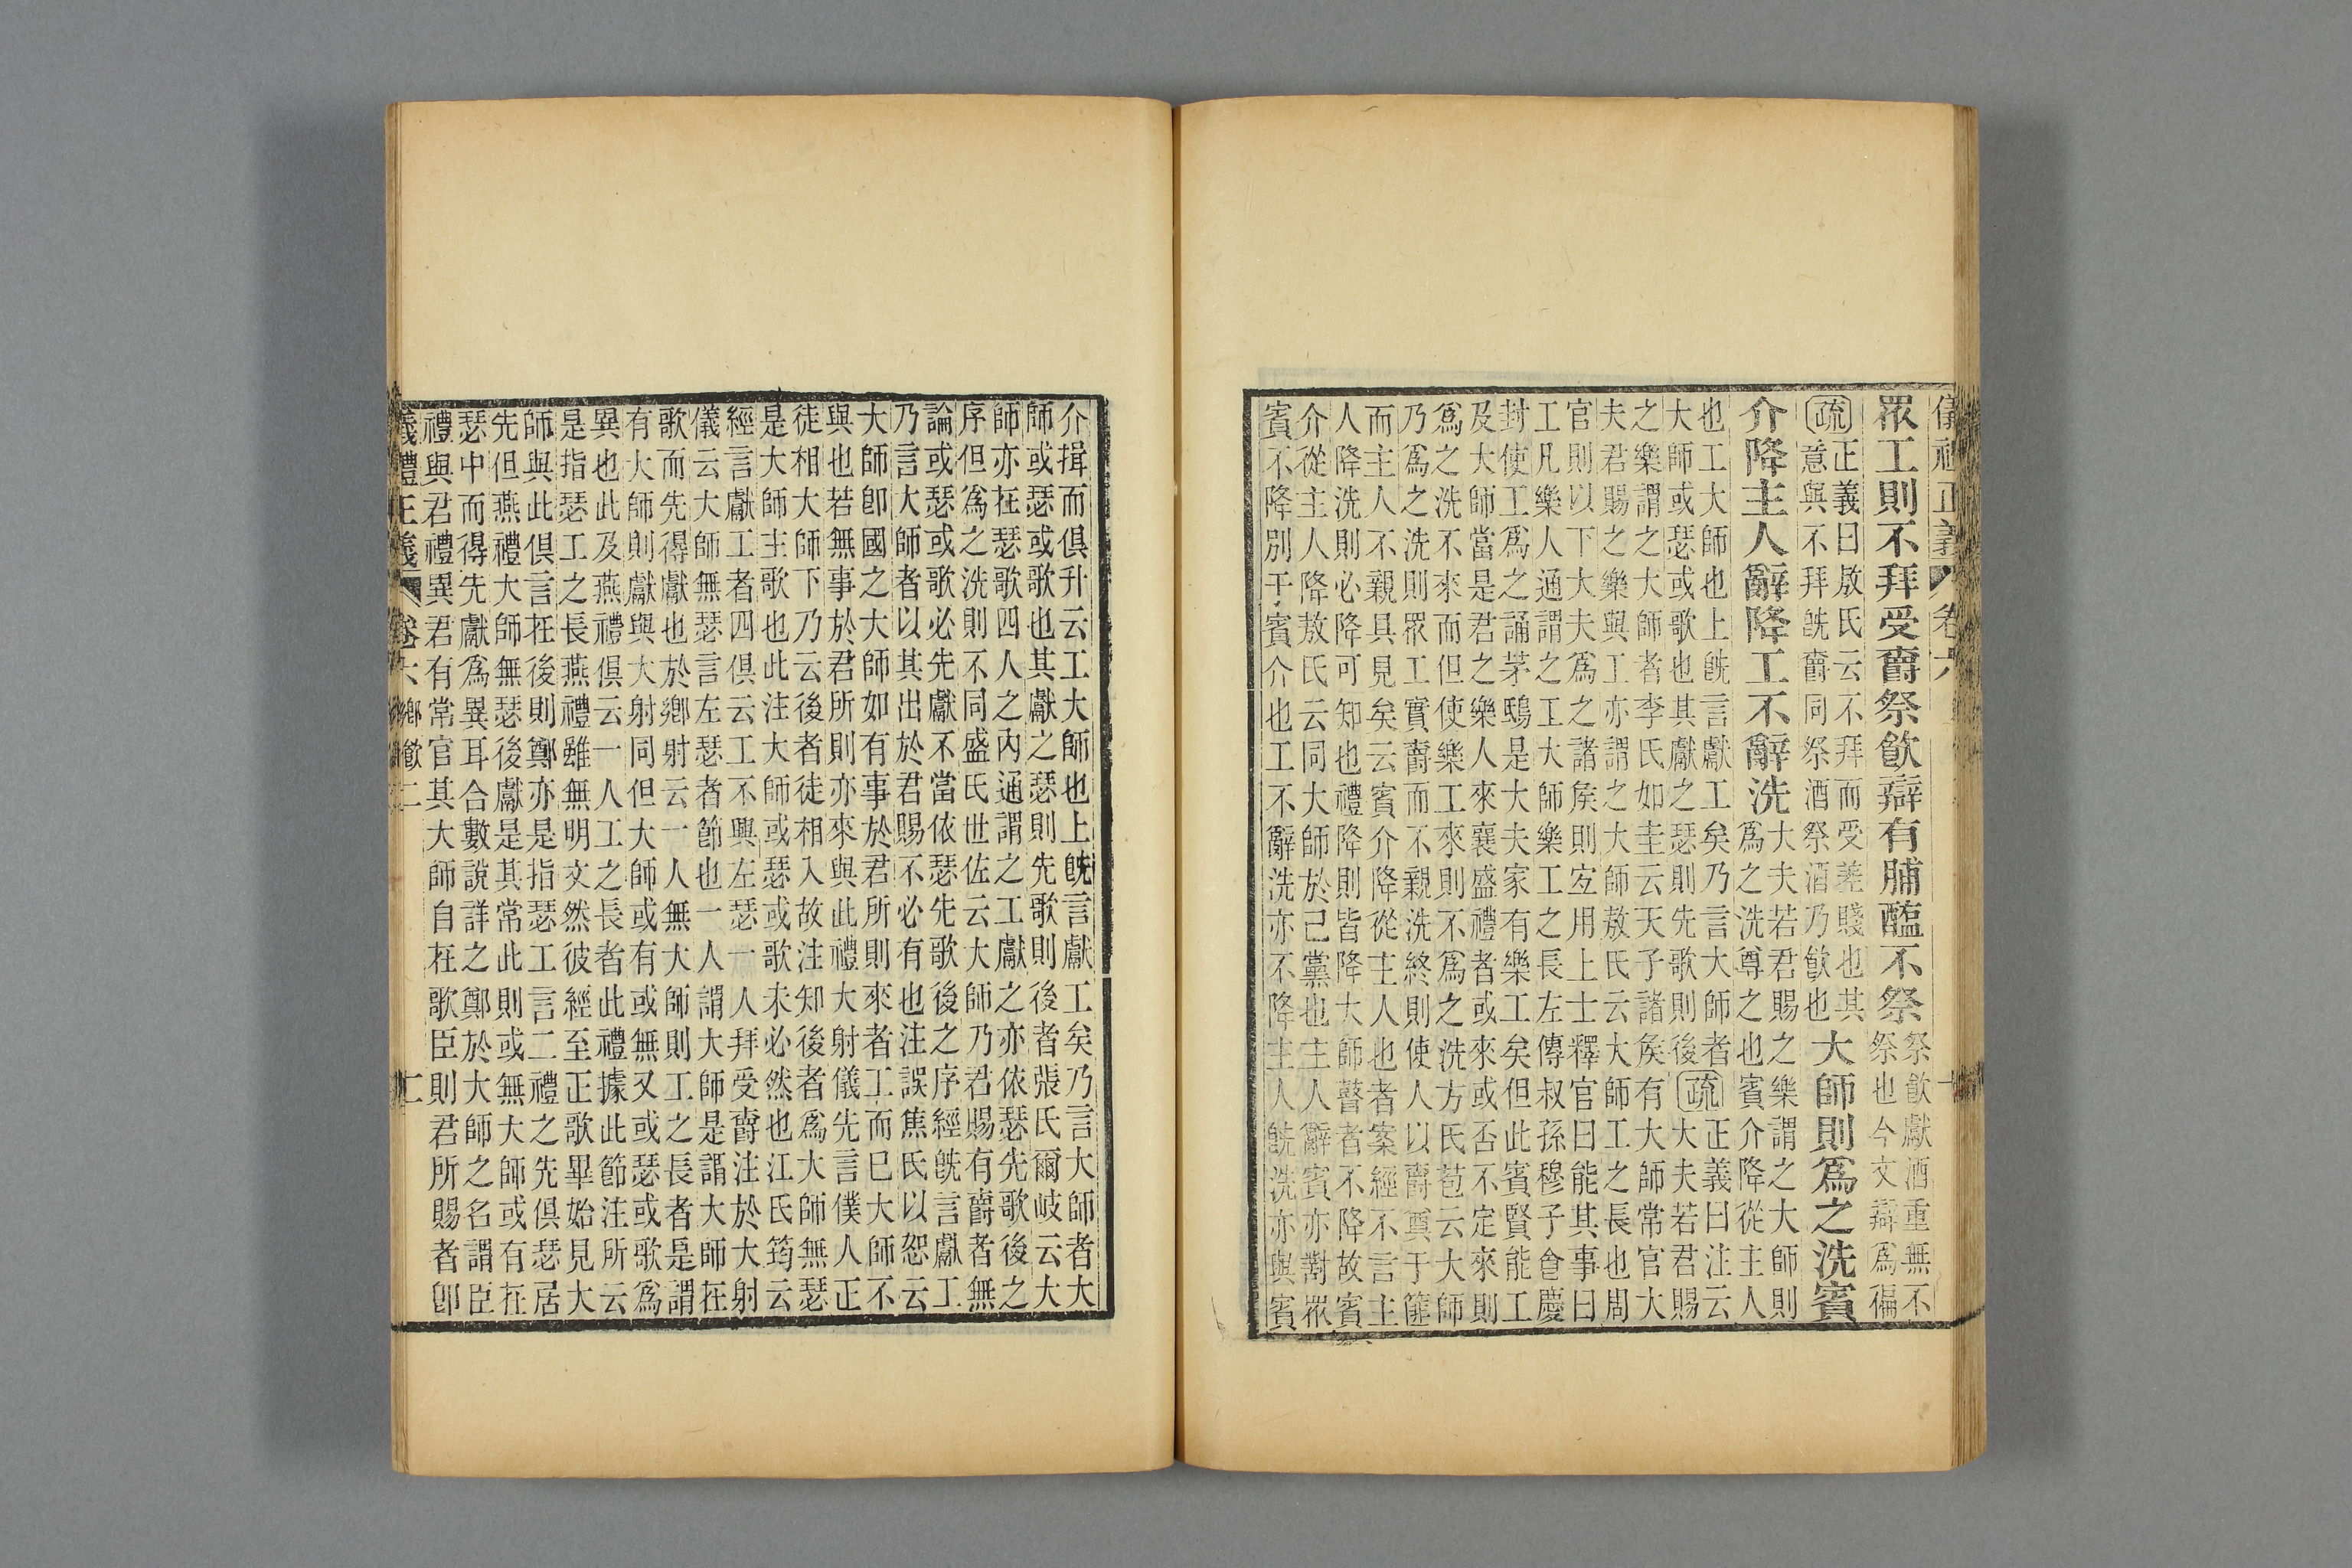 儀禮正義 卷六
眾工則不拜受爵祭飲辯有脯醢不祭祭飲獻酒重無不
祭也今文辯為徧
疏正義曰敖氏云不拜而受爵賤也其
意與不拜旣爵同祭酒祭酒乃飲也大師則為之洗賓
介降主人辭降工不辭洗大夫若君賜之樂謂之大師則
為之洗尊之也賓介降從主人
也工大師也上旣言獻工矣乃言大師者疏正義曰注云
大師或瑟或歌也其獻之瑟則先歌則後大夫若君賜
之樂謂之大師者李氏如圭云天子諸矦有大師常官大
夫君賜之樂與工亦謂之大師敖氏云大師工之長也周
官則以下大夫為之諸矦則宐用上士釋官曰能其事曰
工凡樂人通謂之工大師樂工之長左傳叔孫穆子食慶
封使工為之誦茅鴟是大夫家有樂工矣但此賓賢能工
及大師當是君之樂人來襄盛禮者或來或否不定來則
為之洗不來而但使樂工來則不為之洗方氏苞云大師
乃為之洗則眾工實爵而不親洗終則使人以爵奠于篚
而主人不親具見矣云賓介降從主人也者案經不言主
人降洗則必降可知也禮降則皆降大師瞽者不降故賓
介從主人降敖氏云同大師於己黨也主人辭賓亦對眾
賓不降別于賓介也工不辭洗亦不降主人旣洗亦與賓
介揖而俱升云工大師也上旣言獻工矣乃言大師者大
師或瑟或歌也其獻之瑟則先歌則後者張氏爾岐云大
師亦在瑟歌四人之內通謂之工獻之亦依瑟先歌後之
序但為之洗則不同盛氏世佐云大師乃君賜有爵者無
論或瑟或歌必先獻不當依瑟先歌後之序經旣言獻工
乃言大師者以其出於君賜不必有也注誤焦氏以恕云
大師卽國之大師如有事於君所則來者工而已大師不
與也若無事於君所則亦來與此禮大射儀先言僕人正
徒相大師下乃云後者徒相入故注知後者為大師無瑟
是大師主歌也此注大師或瑟或歌未必然也江氏筠云
經言獻工者四俱云工不興左瑟一人拜受爵注於大射
儀云大師無瑟言左瑟者節也一人謂大師是謂大師在
歌而先得獻也於鄉射云一人無大師則工之長者是謂
有大師則獻與大射同但大師或有或無又或瑟或歌為
異也此及燕禮俱云一人工之長者此禮據此節注所云
是指瑟工之長燕禮雖無明文然彼經至正歌畢始見大
師與此俱言在後則鄭亦是指瑟工言二禮之先俱瑟居
先但燕禮大師無瑟後獻是其常此則或無大師或有在
瑟中而得先獻為異耳合數說詳之鄭於大師之名謂臣
禮與君禮異君有常官其大師自在歌臣則君所賜者卽
儀禮正義 卷六 鄉飲二